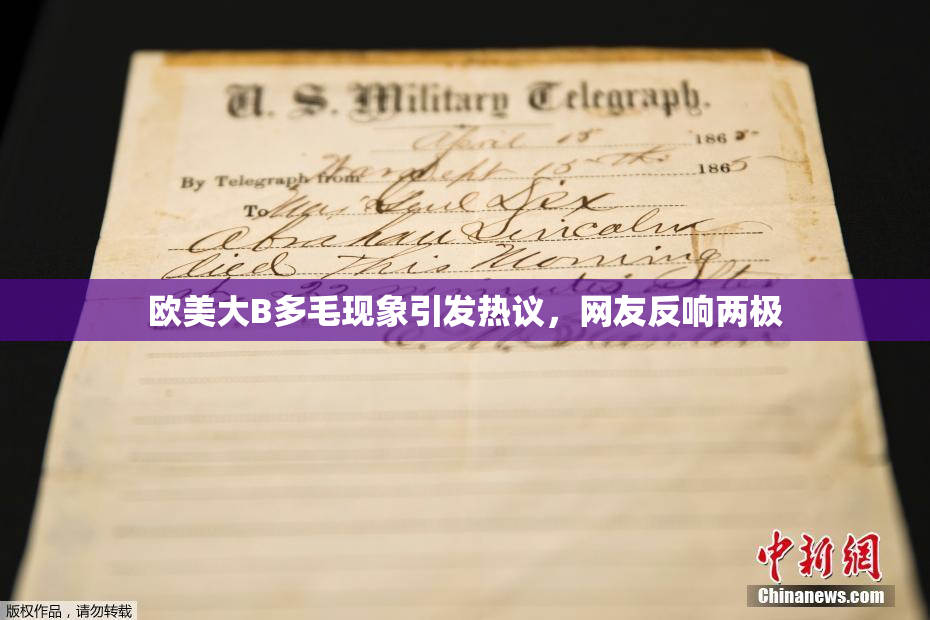 U. S. Military Telegraph.
April 15 1865
By Telegraph from War Dept 15th 1865
To Maj Genl Dix
Abraham Lincoln
died This Morning
at 22 minutes after
欧美大B多毛现象引发热议，网友反响两极
E. M. Stanton
中新网
Chinanews.com
版权作品，请勿转载